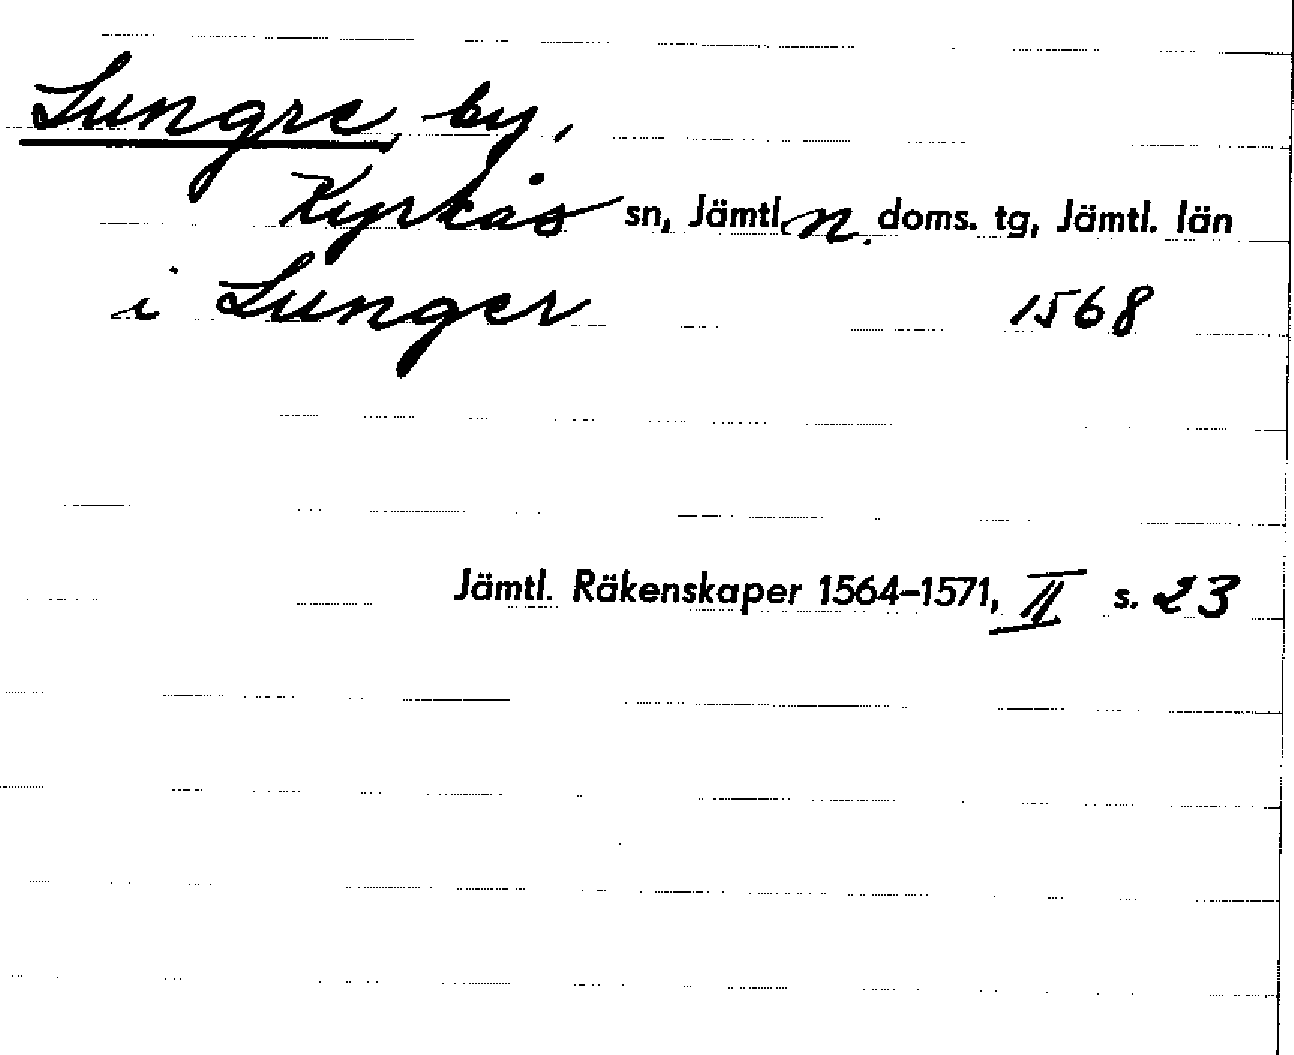 Lungre, by,
Kyrkås sn, Jämtl. n. doms. tg, Jämtl. län
i Lunger 1568
Jämtl. Räkenskaper 1564-1571, II s. 23